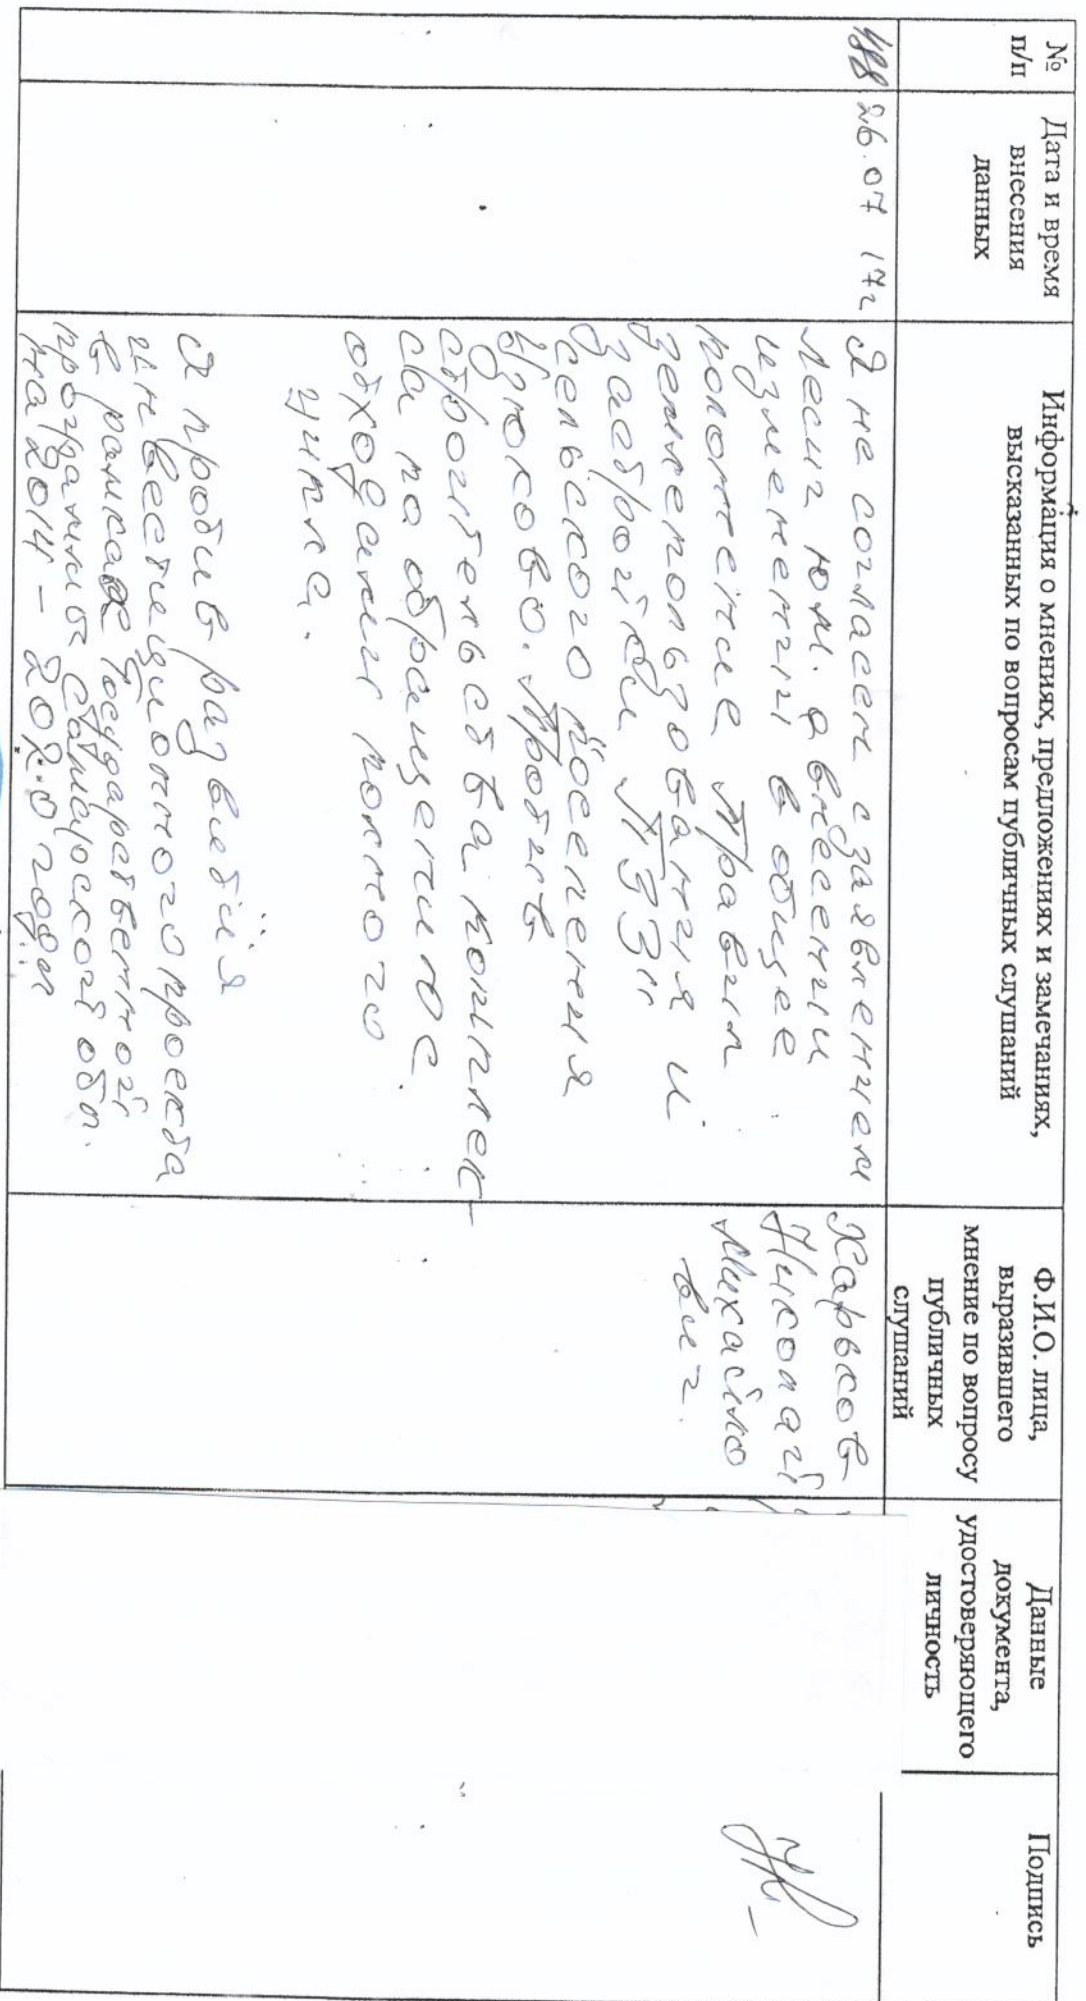 №
п/п
Дата и время
внесения
данных
Информация о мнениях, предложениях и замечаниях,
высказанных по вопросам публичных слушаний
Ф.И.О. лица,
выразившего
мнение по вопросу
публичных
слушаний
Данные
документа,
удостоверяющего
личность
Подпись
26.07 17г
Я не согласен с заявлением
о внесении
изменений в общее
положение Правил
землепользования и
застройки ПЗЗ
сельского поселения
Узюково. Против
строительства комплек-
са по обращению с
отходами полного
цикла.
Я против развития
инвестиционного проекта
в рамках Государственной
программы Самарской обл.
на 2014 - 2020 годы
Николай
Михайло
вич.